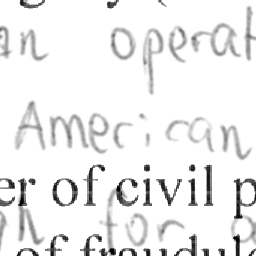 an operat
American
er of civil p
for
of fraudul